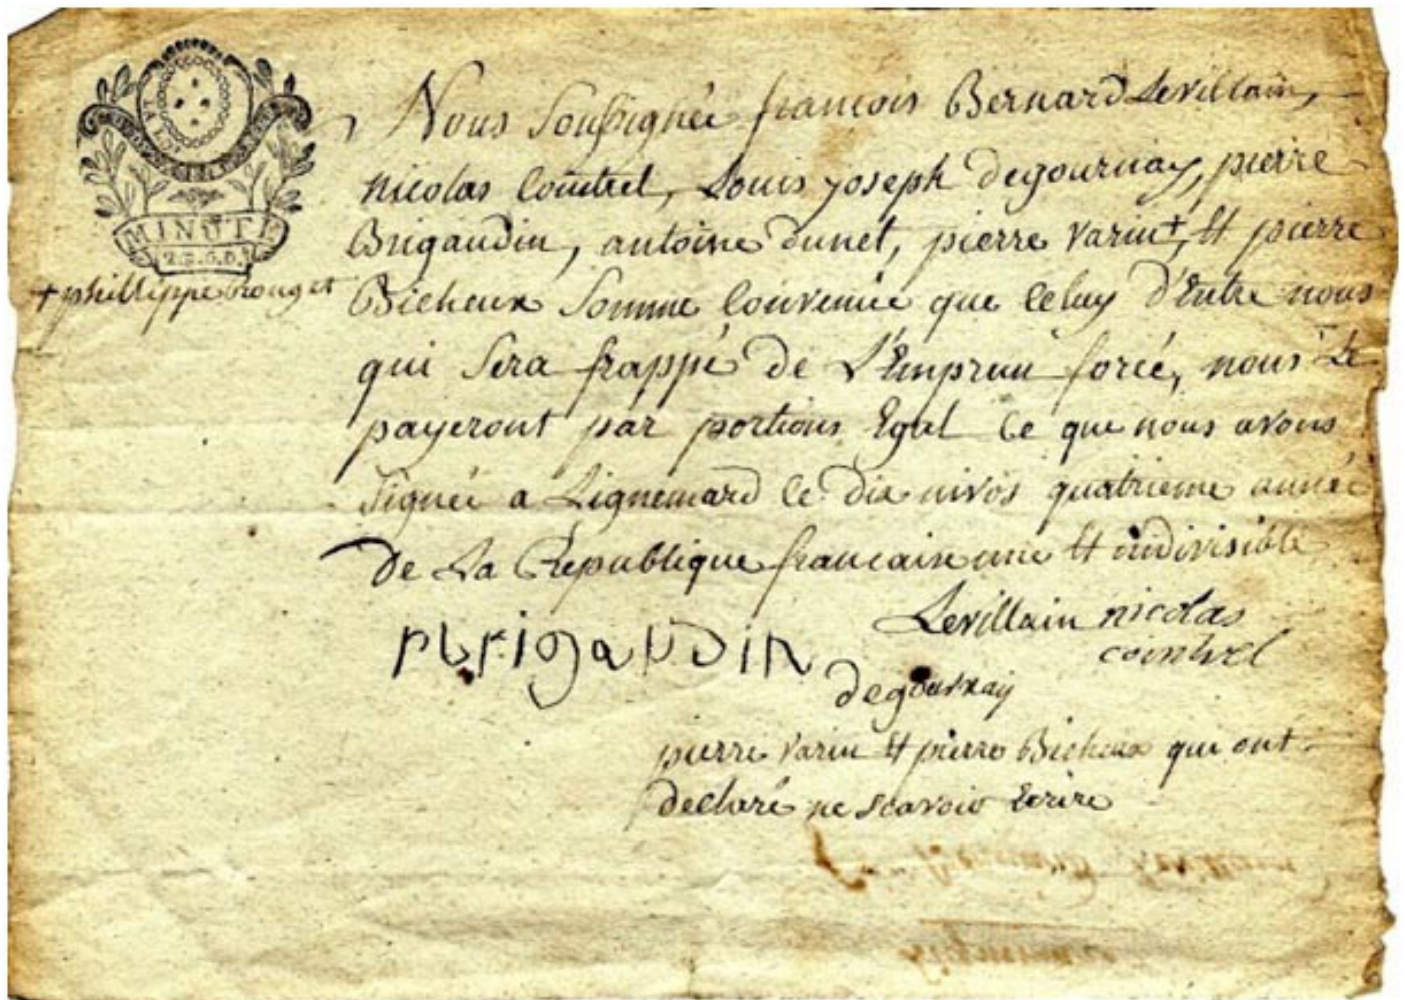 LA LOY
MINUTE
2 S. 6 D.
Nous Soussignée francois Bernard Levillain,
nicolas Cointrel, Louis joseph degournay, pierre
Brigaudin, antoine dunet, pierre varin +, Et pierre
+ phillippe trouget
Bicheux Somme Convenue que Celuy d'Entre nous
qui Sera frappé de L'Emprun forcé, nous Le
payeront par portions Egal Ce que nous avons
Signée a Lignemard le dix nivos quatrieme année
de La Republique francaise une Et indivisible
Levillain nicolas
cointrel
pbrigaudin
degournay
pierre varin Et pierre Bicheux qui ont
declaré ne scavoir Ecrire